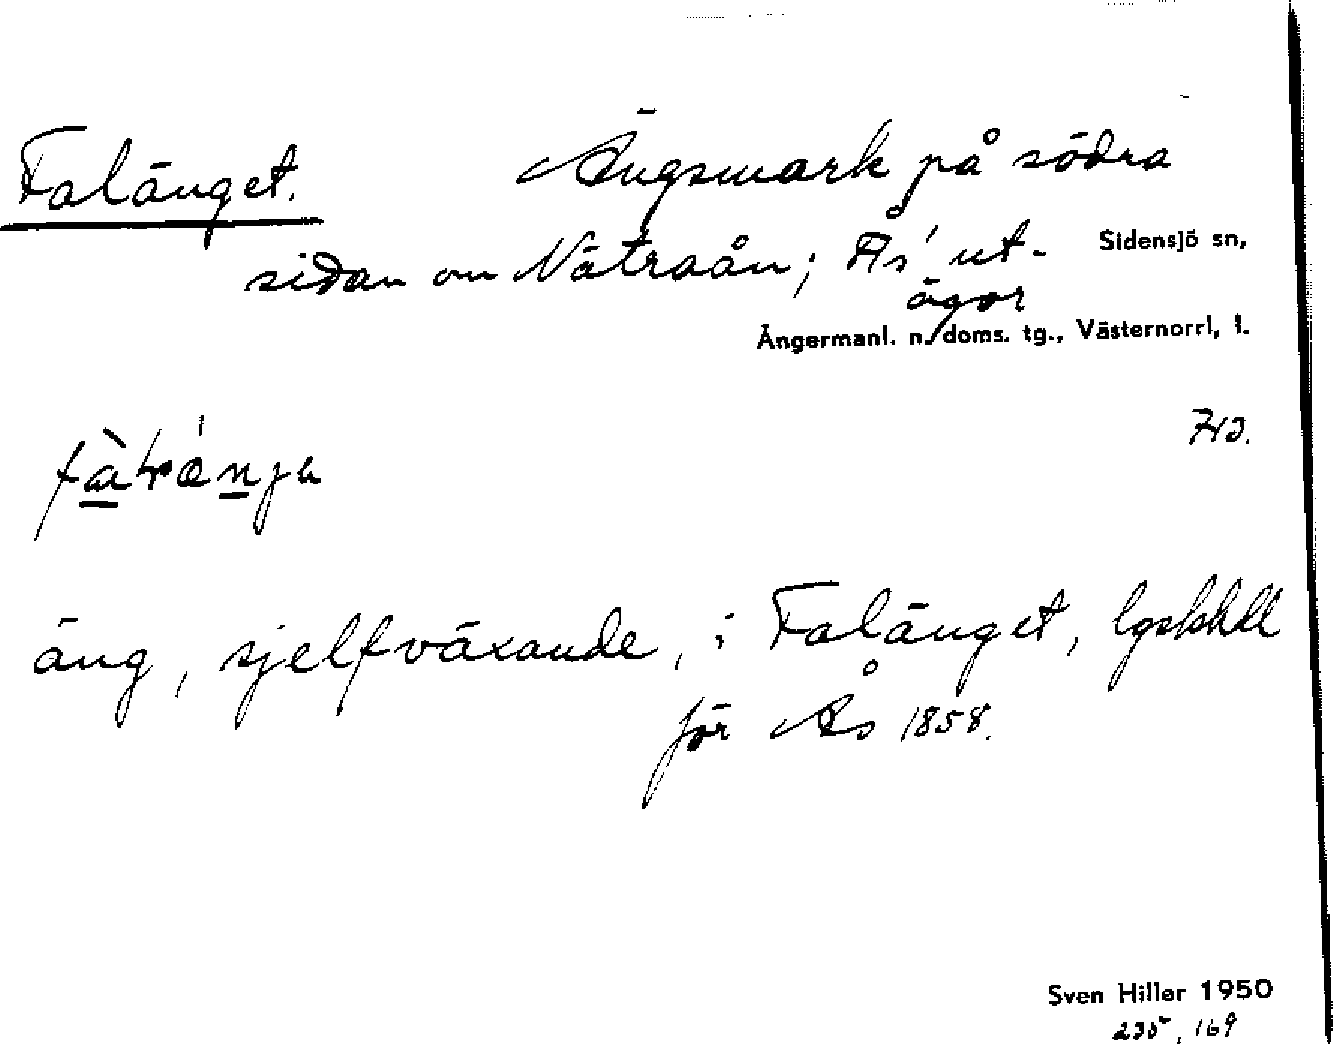 Falänget. Ängsmark på södra
sidan om Nätraån; Ås' ut-
ägor
Sidensjö sn,
Ångermanl. n. doms. tg., Västernorrl, l.
äng, sjelfväxande, i Falänget, lgskhll
för Ås 1858.
Sven Hiller 1950
235, 169